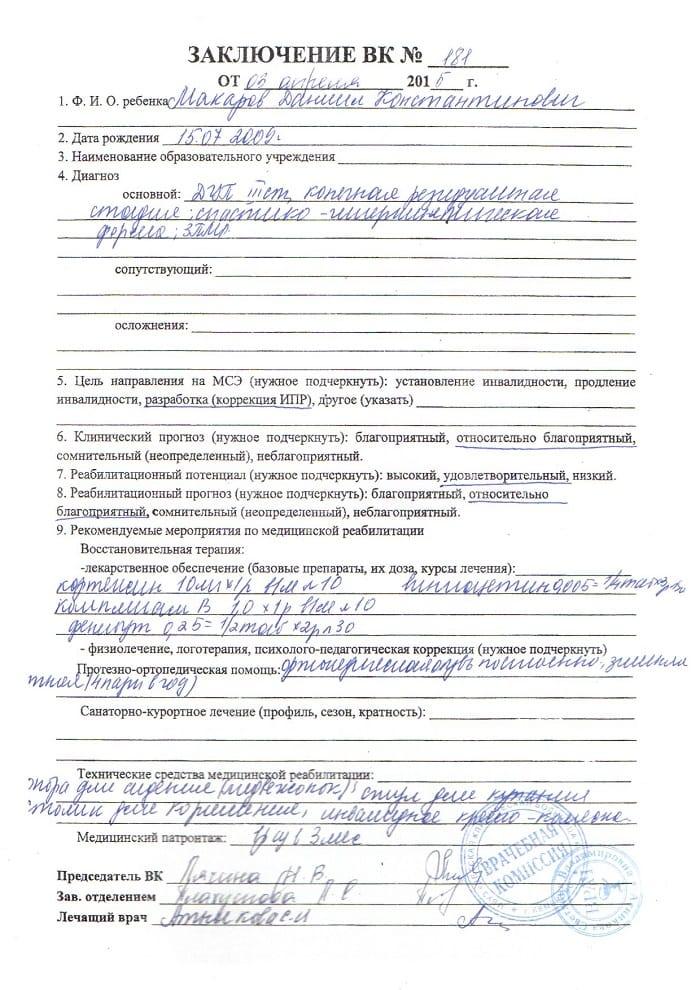 ЗАКЛЮЧЕНИЕ ВК № 181
ОТ 03 апреля 2015 г.
1. Ф. И. О. ребенка Макаров Даниил Константинович
2. Дата рождения 15.07 2009г
3. Наименование образовательного учреждения
4. Диагноз
основной: ДЦП III ст, конечная резидуальная
стадия; спастико-гиперкинетическая
форма; ЗПМР
сопутствующий:
осложнения:
5. Цель направления на МСЭ (нужное подчеркнуть): установление инвалидности, продление
инвалидности, разработка (коррекция ИПР), другое (указать)
6. Клинический прогноз (нужное подчеркнуть): благоприятный, относительно благоприятный,
сомнительный (неопределенный), неблагоприятный.
7. Реабилитационный потенциал (нужное подчеркнуть): высокий, удовлетворительный, низкий.
8. Реабилитационный прогноз (нужное подчеркнуть): благоприятный, относительно
благоприятный, сомнительный (неопределенный), неблагоприятный.
9. Рекомендуемые мероприятия по медицинской реабилитации
Восстановительная терапия:
-лекарственное обеспечение (базовые препараты, их доза, курсы лечения):
кортексин 10мг х 1р в/м №10 винпоцетин 0,005 = 1/4 таб х 3р 30
комплигам В 1,0 х 1р в/м №10
фенибут 0,25 = 1/2 таб х 2р п 30
- физиолечение, логотерапия, психолого-педагогическая коррекция (нужное подчеркнуть)
Протезно-ортопедическая помощь: ортопедическая обувь постоянно, зимняя
летняя (4 пары в год)
Санаторно-курортное лечение (профиль, сезон, кратность):
Технические средства медицинской реабилитации:
опора для сидения (медвежонок); стул для купания
столик для кормления, инвалидное кресло-коляска
Медицинский патронаж: 1 раз в 3 мес
Председатель ВК Н. В.
Зав. отделением
Лечащий врач
ВРАЧЕБНАЯ
КОМИССИЯ
ВРАЧ